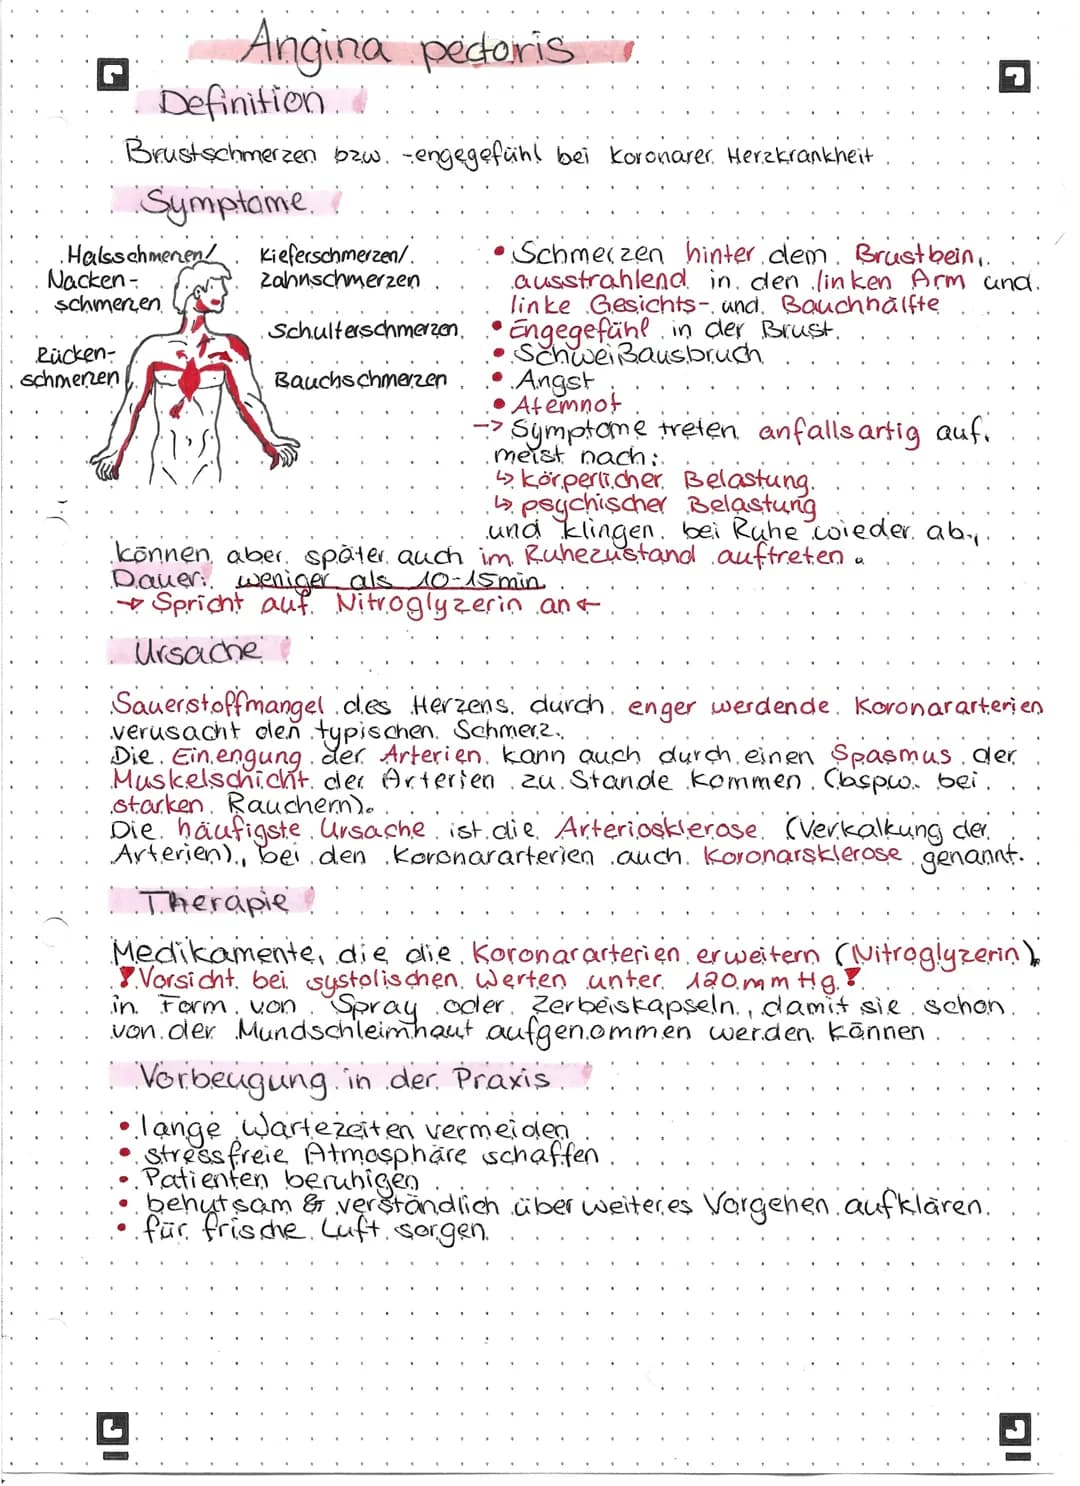 Angina pectoris
Definition
Brustschmerzen bzw. -engegefühl bei koronarer Herzkrankheit
Symptome
Halsschmerzen/
Nacken-
schmerzen
Kieferschmerzen/
Zahnschmerzen
Schulterschmerzen
Rücken-
schmerzen
Bauchschmerzen
• Schmerzen hinter dem Brustbein,
ausstrahlend in den linken Arm und
linke Gesichts- und Bauchhälfte
• Engegefühl in der Brust
• Schweißausbruch
• Angst
• Atemnot
-> Symptome treten anfallsartig auf,
meist nach:
↳ körperlicher Belastung
↳ psychischer Belastung
und klingen bei Ruhe wieder ab,
können aber später auch im Ruhezustand auftreten.
Dauer: weniger als 10-15min
→ Spricht auf Nitroglyzerin an ←
Ursache
Sauerstoffmangel des Herzens durch enger werdende Koronararterien
verusacht den typischen Schmerz.
Die Einengung der Arterien kann auch durch einen Spasmus der
Muskelschicht der Arterien zu Stande kommen (bspw. bei
starken Rauchern).
Die häufigste Ursache ist die Arteriosklerose (Verkalkung der
Arterien), bei den Koronararterien auch Koronarsklerose genannt.
Therapie
Medikamente, die die Koronararterien erweitern (Nitroglyzerin)
! Vorsicht bei systolischen Werten unter 120 mmHg !
in Form von Spray oder Zerbeiskapseln, damit sie schon
von der Mundschleimhaut aufgenommen werden können
Vorbeugung in der Praxis
• lange Wartezeiten vermeiden
• stressfreie Atmosphäre schaffen
• Patienten beruhigen
• behutsam & verständlich über weiteres Vorgehen aufklären
• für frische Luft sorgen